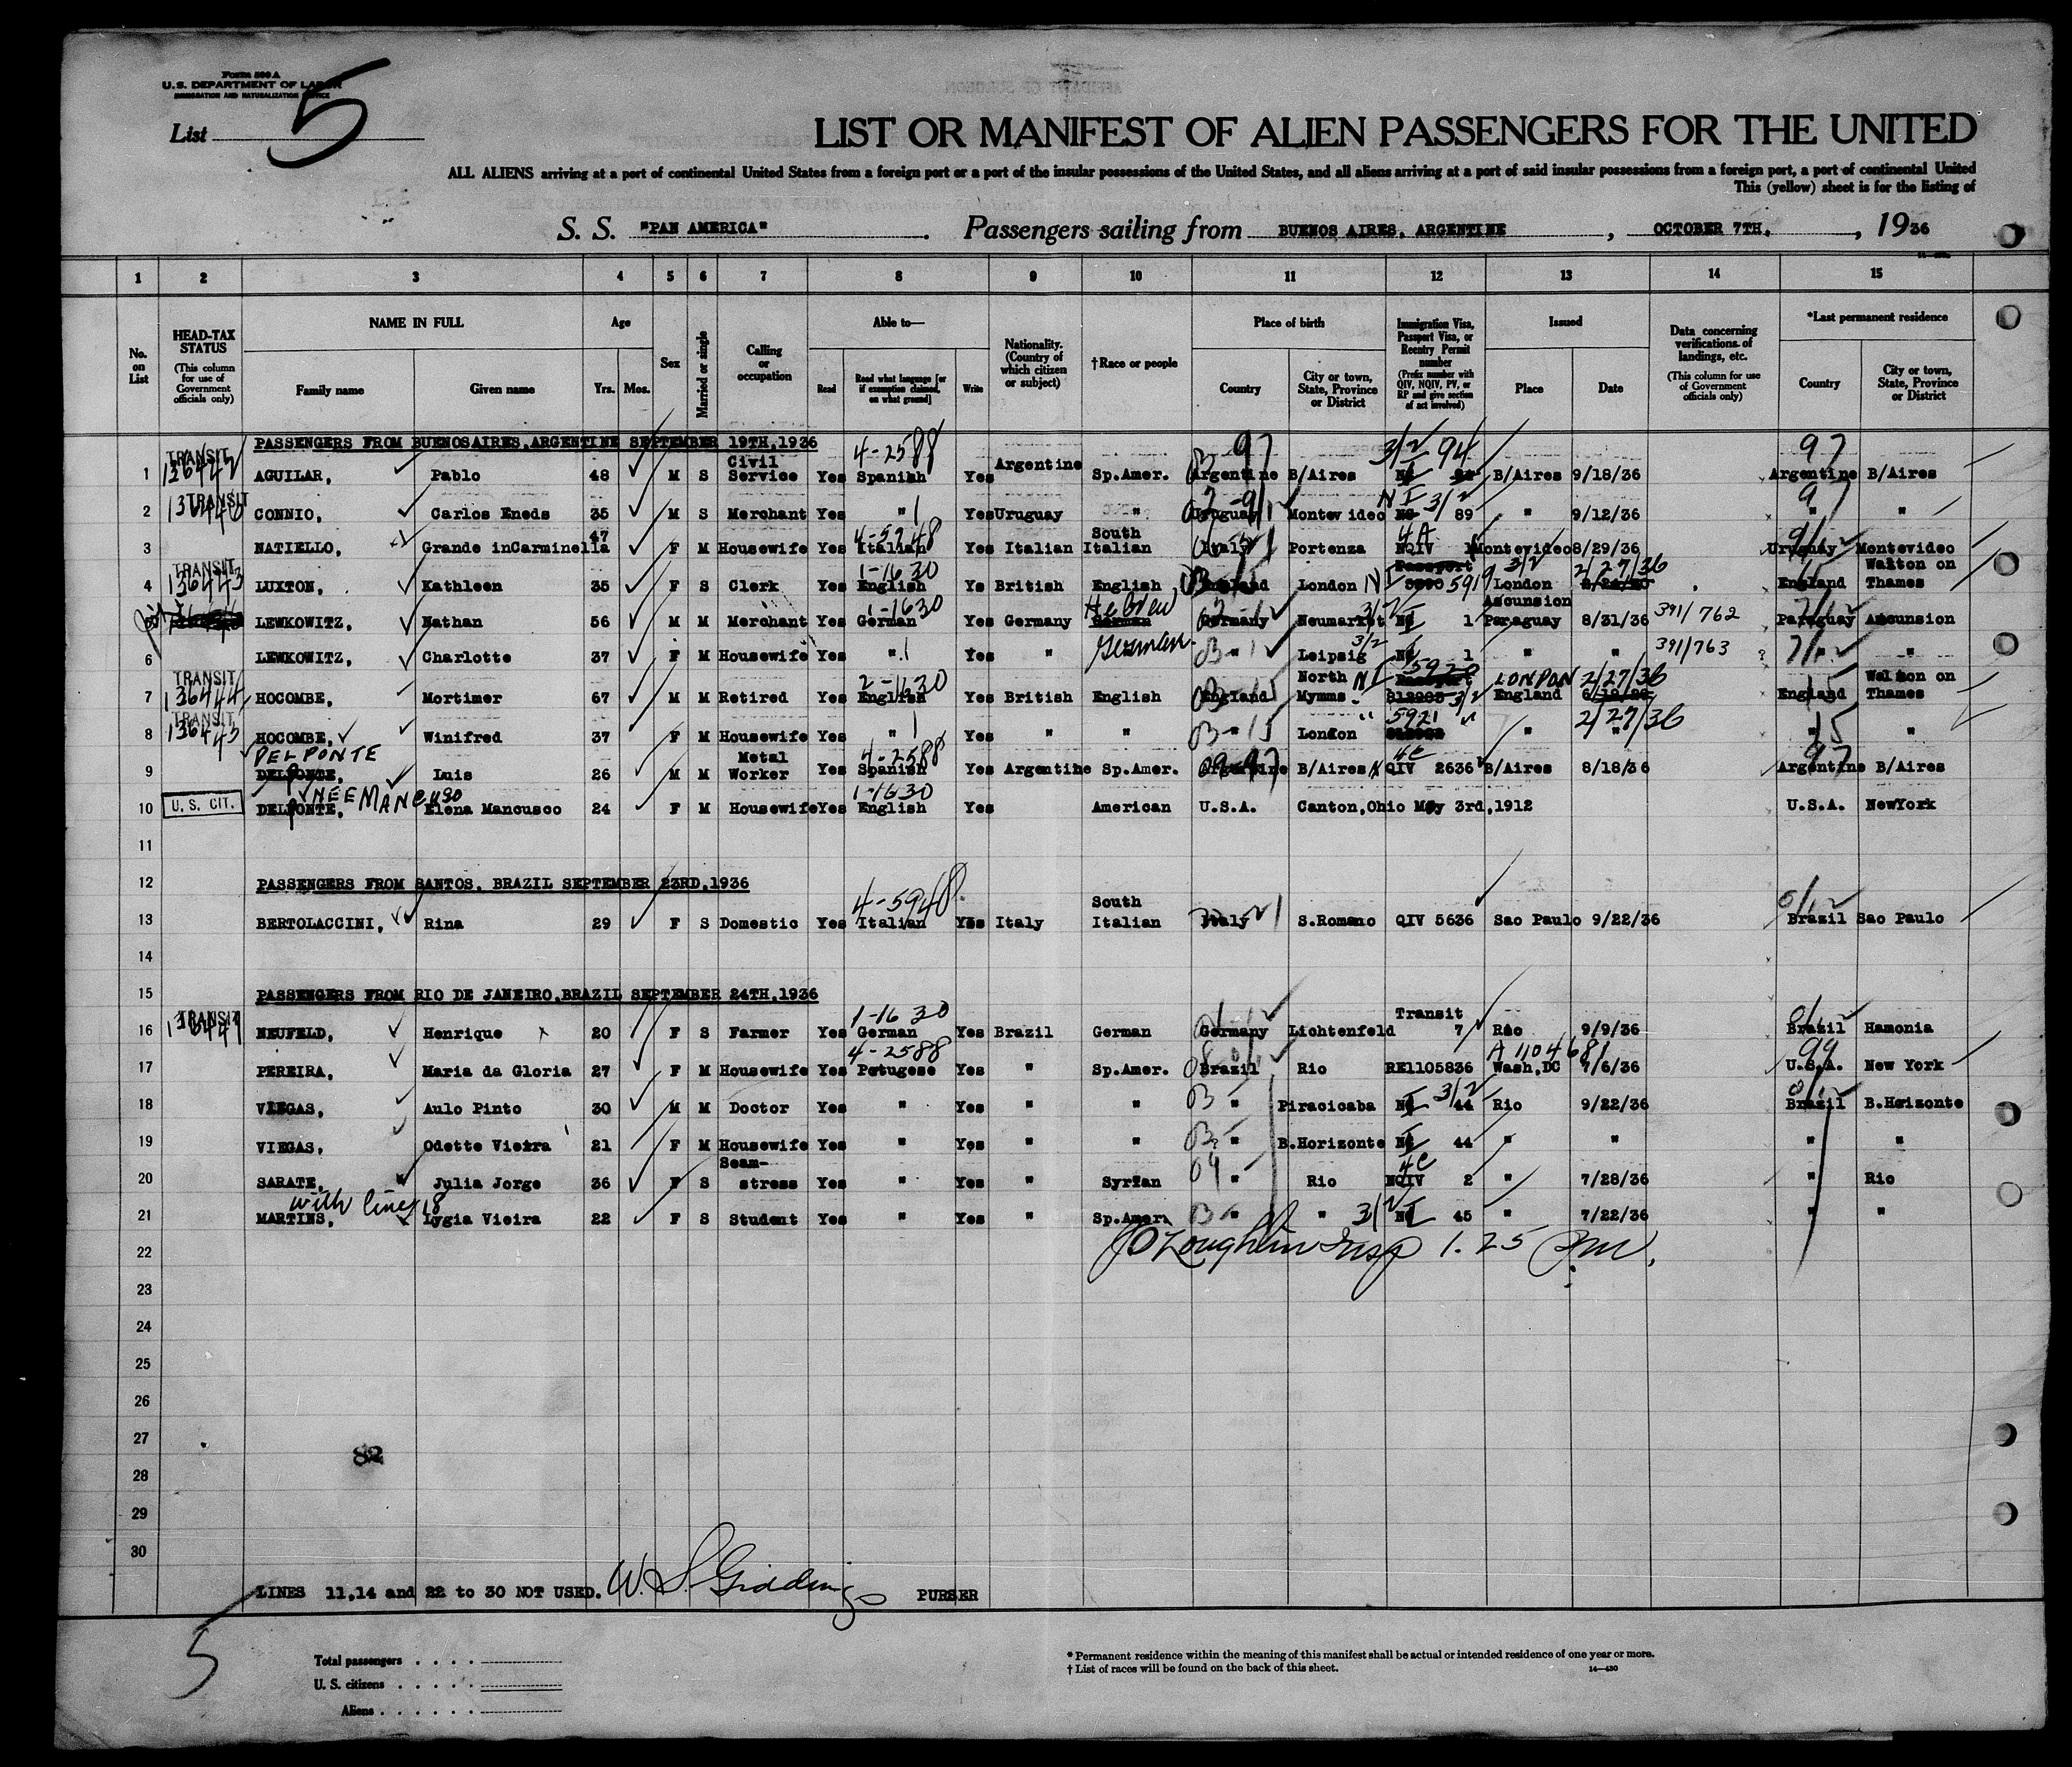 Form 500 A
U.S. DEPARTMENT OF LABOR
IMMIGRATION AND NATURALIZATION SERVICE
List 5
LIST OR MANIFEST OF ALIEN PASSENGERS FOR THE UNITED
ALL ALIENS arriving at a port of continental United States from a foreign port or a port of the insular possessions of the United States, and all aliens arriving at a port of said insular possessions from a foreign port, a port of continental United
This (yellow) sheet is for the listing of
S. S. "PAN AMERICA". Passengers sailing from BUENOS AIRES, ARGENTINE, OCTOBER 7TH., 1936
1 2 3 4 5 6 7 8 9 10 11 12 13 14 15
No. on List
HEAD-TAX STATUS (This column for use of Government officials only)
NAME IN FULL Family name Given name
Age Yrs. Mos.
Sex
Married or single
Calling or occupation
Able to— Read Read what language [or if exemption claimed, on what ground] Write
Nationality. (Country of which citizen or subject)
†Race or people
Place of birth Country City or town, State, Province or District
Immigration Visa, Passport Visa, or Reentry Permit number (Prefix number with QIV, NQIV, PV, or RP and give section of act involved)
Issued Place Date
Data concerning verifications of landings, etc. (This column for use of Government officials only)
*Last permanent residence Country City or town, State, Province or District
PASSENGERS FROM BUENOSAIRES, ARGENTINE SEPTEMBER 19TH, 1936
4-2588 97 3/2 94 97
1 TRANSIT 136442 AGUILAR, Pablo 48 M S Civil Service Yes Spanish Yes Argentine Sp.Amer. Argentine B/Aires B/Aires 9/18/36 Argentine B/Aires
2 TRANSIT CONNIO, Carlos Eneds 35 M S Merchant Yes " Yes Uruguay " Uruguay Montevideo NI 3/2 89 " 9/12/36 " "
3 NATIELLO, Grande inCarminella 47 F M Housewife Yes 4-5948 Italian Yes Italian South Italian Italy Portenza 4A NQIV 1 Montevideo 8/29/36 Uruguay Montevideo
4 TRANSIT 136443 LUXTON, Kathleen 35 F S Clerk Yes 1-1630 English Ye British English England London NI Passport 5919 3/2 London 2/27/36 England Walton on Thames
5 LEWKOWITZ, Nathan 56 M M Merchant Yes 1-1630 German Yes Germany Hebrew German Germany Neumarket 3/2 1 Ascunsion Paraguay 8/31/36 391/762 Paraguay Ascunsion
6 LEWKOWITZ, Charlotte 37 F M Housewife Yes " Yes " German " Leipsig 3/2 1 " " 391/763 " "
7 TRANSIT 136444 HOCOMBE, Mortimer 67 M M Retired Yes English Yes British English England North Mymms NI 5920 3/2 LONDON England 2/27/36 England Walton on Thames
8 TRANSIT 136445 HOCOMBE, Winifred 37 F M Housewife Yes " Yes " " " London 5921 " 2/27/36 " "
DELPONTE
9 DELPONTE, Luis 26 M M Metal Worker Yes 4-2588 Spanish Yes Argentine Sp.Amer. Argentine B/Aires 4c QIV 2636 B/Aires 8/18/36 Argentine B/Aires
NEE MANCUSO
10 U. S. CIT. DELPONTE, Elena Mancusco 24 F M Housewife Yes 1-1630 English Yes American U.S.A. Canton, Ohio May 3rd, 1912 U.S.A. NewYork
11
12 PASSENGERS FROM SANTOS, BRAZIL SEPTEMBER 23RD, 1936
13 BERTOLACCINI, Rina 29 F S Domestic Yes 4-5948 Italian Yes Italy South Italian Italy S.Romano QIV 5636 Sao Paulo 9/22/36 Brazil Sao Paulo
14
15 PASSENGERS FROM RIO DE JANEIRO, BRAZIL SEPTEMBER 24TH, 1936
16 TRANSIT NEUFELD, Henrique 20 F S Farmer Yes 1-1630 German Yes Brazil German Germany Lichtenfeld Transit 7 Rio 9/9/36 Brazil Hamonia
17 PEREIRA, Maria da Gloria 27 F M Housewife Yes 4-2588 Potugese Yes " Sp.Amer. Brazil Rio RE1105836 A 1104681 Wash, DC 7/6/36 99 U.S.A. New York
18 VIEGAS, Aulo Pinto 30 M M Doctor Yes " Yes " " " Piracicaba 3/2 44 Rio 9/22/36 Brazil B.Horizonte
19 VIEGAS, Odette Vieira 21 F M Housewife Yes " Yes " " " B.Horizonte 44 " " " "
20 SARATE, Julia Jorge 36 F S Seam-stress Yes " Yes " Syrian " Rio 4c NQIV 2 " 7/28/36 " Rio
with line 18
21 MARTINS, Lygia Vieira 22 F S Student Yes " Yes " Sp.Amer. " " 3/2 45 " 7/22/36 " "
22 JO'Loughlin Insp 1.25 PM.
23
24
25
26
27
82
28
29
30
LINES 11,14 and 22 to 30 NOT USED. W. S. Giddings PURSER
5
Total passengers
U. S. citizens
Aliens
* Permanent residence within the meaning of this manifest shall be actual or intended residence of one year or more.
† List of races will be found on the back of this sheet.
14—430